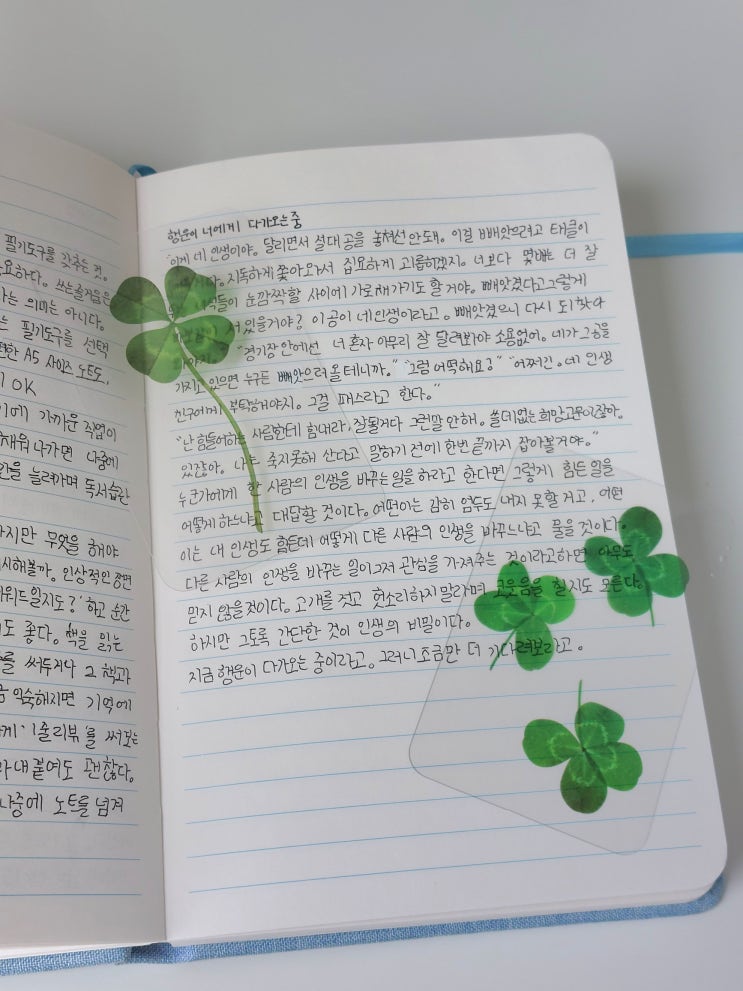 필기도구를 갖추는 것.
요하다. 쓰는즐거움은
는 의미는 아니다.
는 필기도구를 선택
편한 A5 사이즈 노트도,
OK
에 가까운 직업이
채워 나가면 나중에
간을 늘려가며 독서습관
하지만 무엇을 해야
시해볼까. 인상적인 장면
워드일지도?' 하고 순간
도 좋다. 책을 읽는
를 써두거나 그 책과
금 익숙해지면 기억에
게 '1줄리뷰'를 써보는
라내 붙여도 괜찮다.
나중에 노트를 넘겨
행운이 너에게 다가오는 중
"이게 네 인생이야. 달리면서 절대 공을 놓쳐선 안돼. 이걸 빼앗으려고 태클이
지독하게 쫓아와서 집요하게 괴롭히겠지. 너보다 몇배는 더 잘
녀석들이 눈깜짝할 사이에 가로채가기도 할거야. 빼앗겼다고그렇게
서 있을거야? 이 공이 네인생이라고. 빼앗겼으니 다시 되찾아
"경기장 안에선 너 혼자 아무리 잘 달려봐야 소용없어. 네가 그공을
가지고 있으면 누구든 빼앗으려 올테니까." "그럼 어떡해요?" "어쩌긴. 네 인생
친구에게 부탁할거야지. 그걸 패스라고 한다."
"난 힘들어하는 사람한테 힘내라, 잘될거다 그런말 안해. 쓸데없는 희망고문이잖아.
있잖아. 나는 죽지못해 산다고 말하기 전에 한번 끝까지 잡아볼거야."
누군가에게 한 사람의 인생을 바꾸는일을 하라고 한다면 그렇게 힘든 일을
어떻게 하느냐고 대답할 것이다. 어떤이는 감히 엄두도 내지 못할 거고. 어떤
이는 내 인생도 힘든데 어떻게 다른 사람의 인생을 바꾸느냐고 물을 것이다.
다른 사람의 인생을 바꾸는 일이그저 관심을 가져주는 것이라고하면 아무도
믿지 않을것이다. 고개를 젓고 헛소리하지 말라며 코웃음을 칠지도 모른다.
하지만 그토록 간단한 것이 인생의 비밀이다.
지금 행운이 다가오는 중이라고. 그러니 조금만 더 기다려보라고.